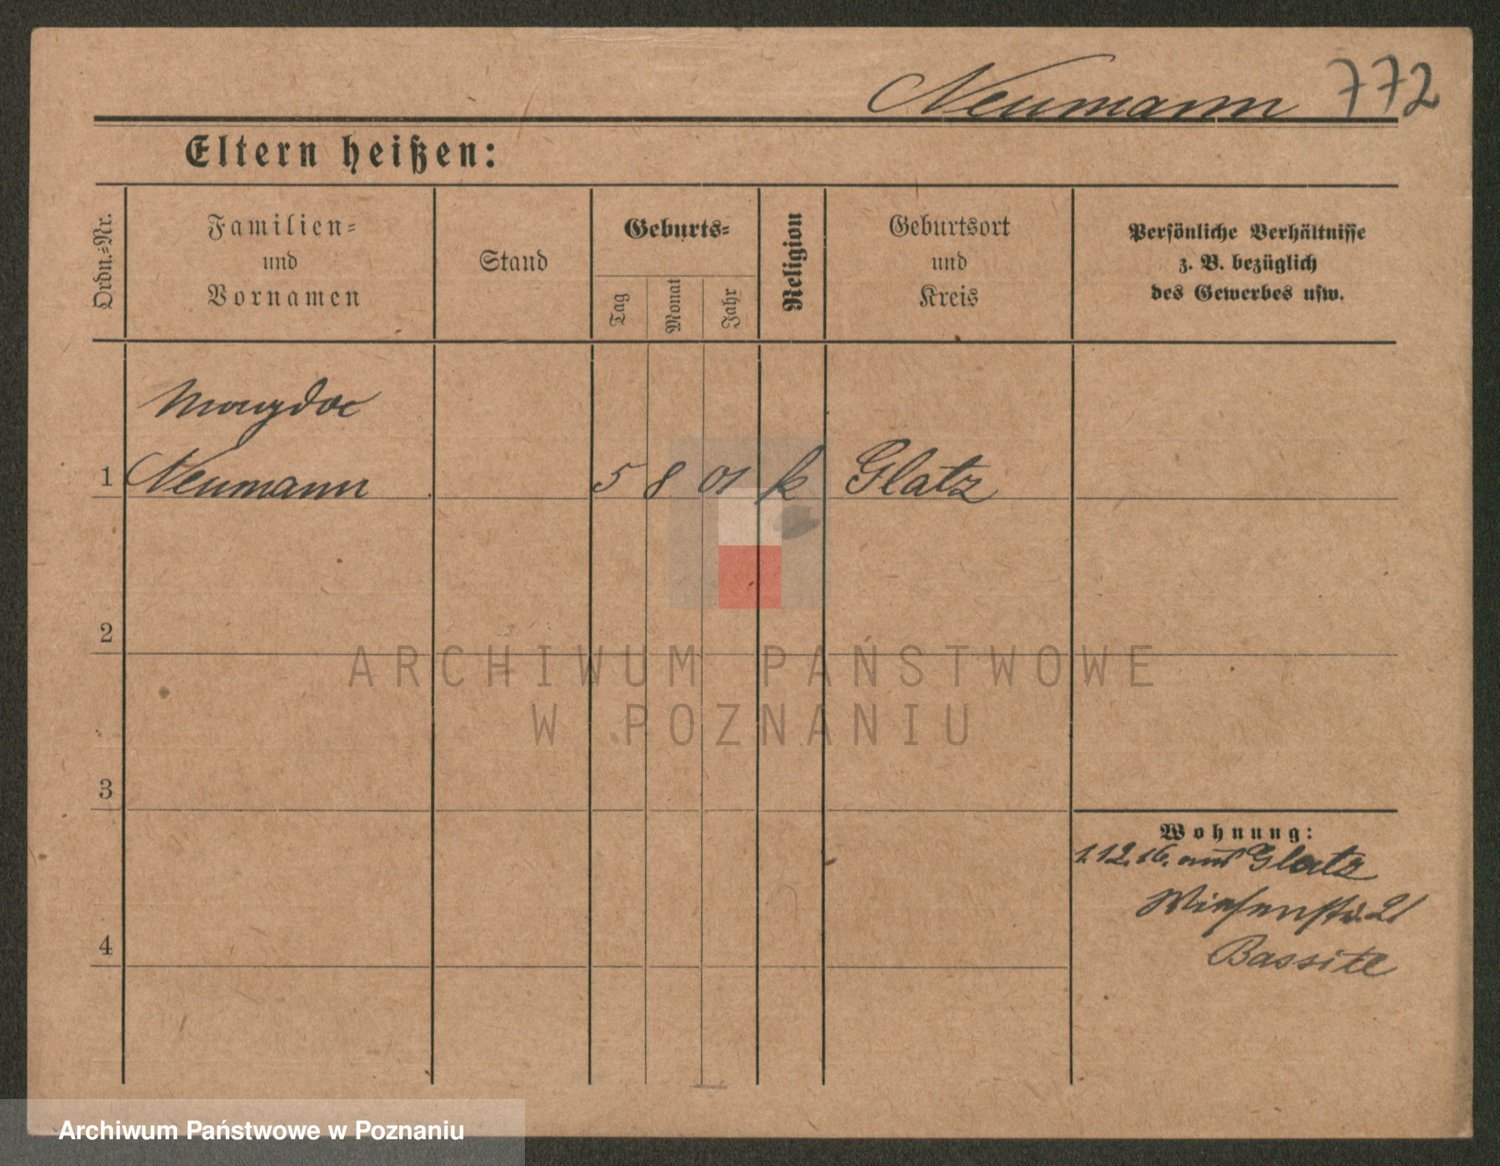 Neumann 772
Eltern heißen:
Ordn.-Nr.
Familien-
und
Vornamen
Stand
Geburts-
Tag
Monat
Jahr
Religion
Geburtsort
und
Kreis
Persönliche Verhältnisse
z. B. bezüglich
des Gewerbes usw.
1 Neumann 5 8 01 k Glatz
2
3
4
Wohnung:
1.12.16. aus Glatz
Wiesenstr. 21
ARCHIWUM PAŃSTWOWE
W POZNANIU
Archiwum Państwowe w Poznaniu